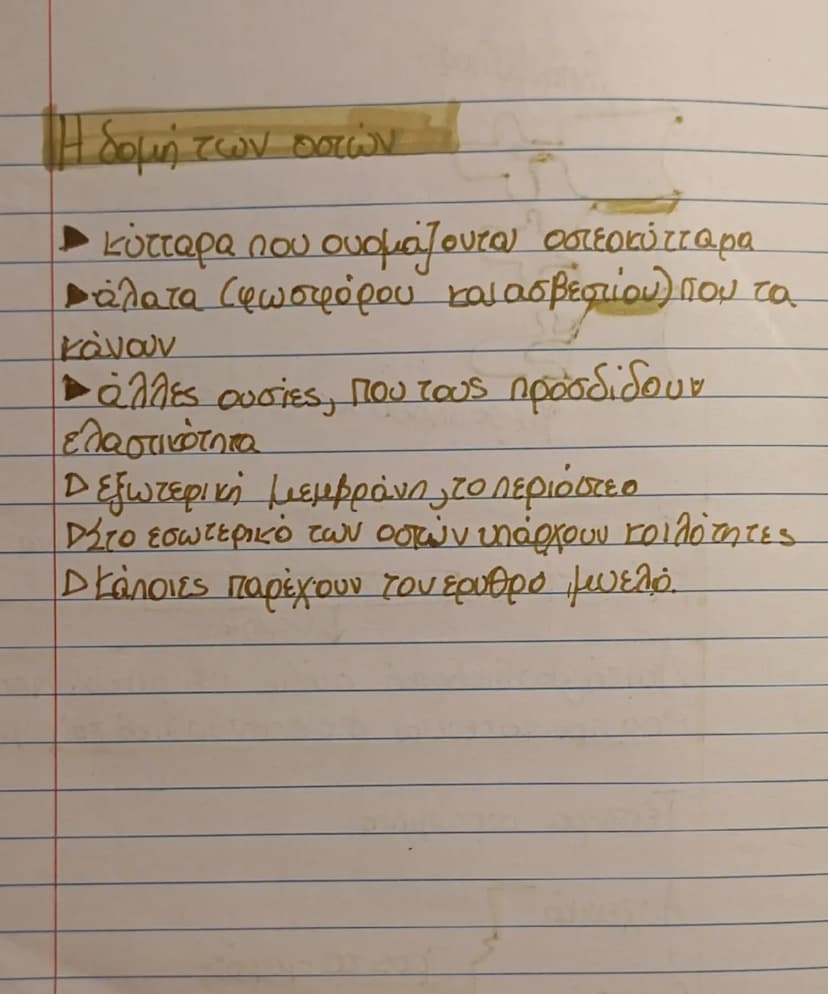 Η δομή των οστών
▶ κύτταρα που ονομάζονται οστεοκύτταρα
▶ άλατα (φωσφόρου και ασβεστίου) που τα
κάνουν
▶ άλλες ουσίες, που τους προσδίδουν
ελαστικότητα
▷ εξωτερική μεμβράνη, το περιόστεο
▷ Στο εσωτερικό των οστών υπάρχουν κοιλότητες
▷ Κάποιες παρέχουν τον ερυθρό μυελό.